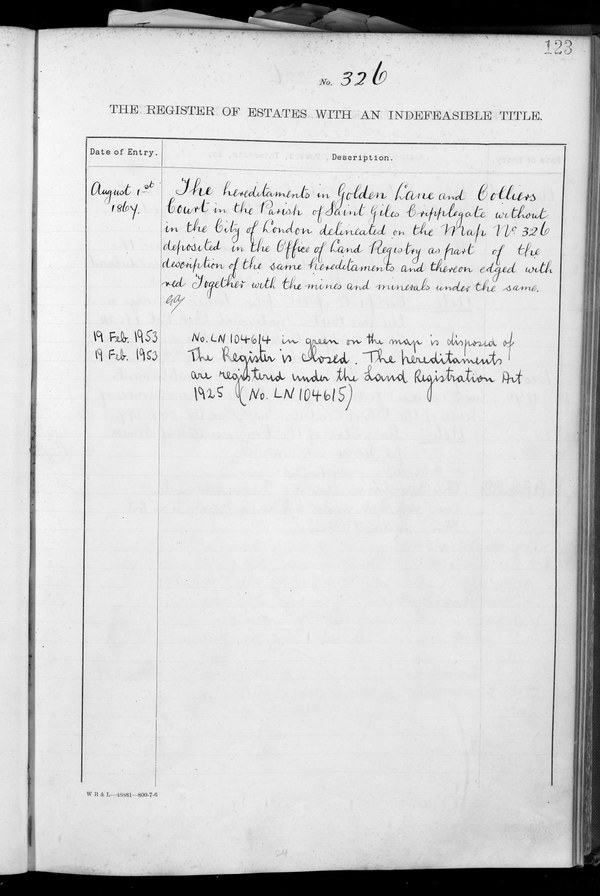 123
No. 326
THE REGISTER OF ESTATES WITH AN INDEFEASIBLE TITLE.
Date of Entry.
Description.
August 1st
1864.
The hereditaments in Golden Lane and Colliers
Court in the Parish of Saint Giles Cripplegate without
in the City of London delineated on the Map No 326
deposited in the Office of Land Registry as part of the
description of the same hereditaments and thereon edged with
red Together with the mines and minerals under the same.
19 Feb. 1953
No. LN 104614 in green on the map is disposed of
19 Feb. 1953
The Register is closed. The hereditaments
are registered under the Land Registration Act
1925 (No. LN 104615)